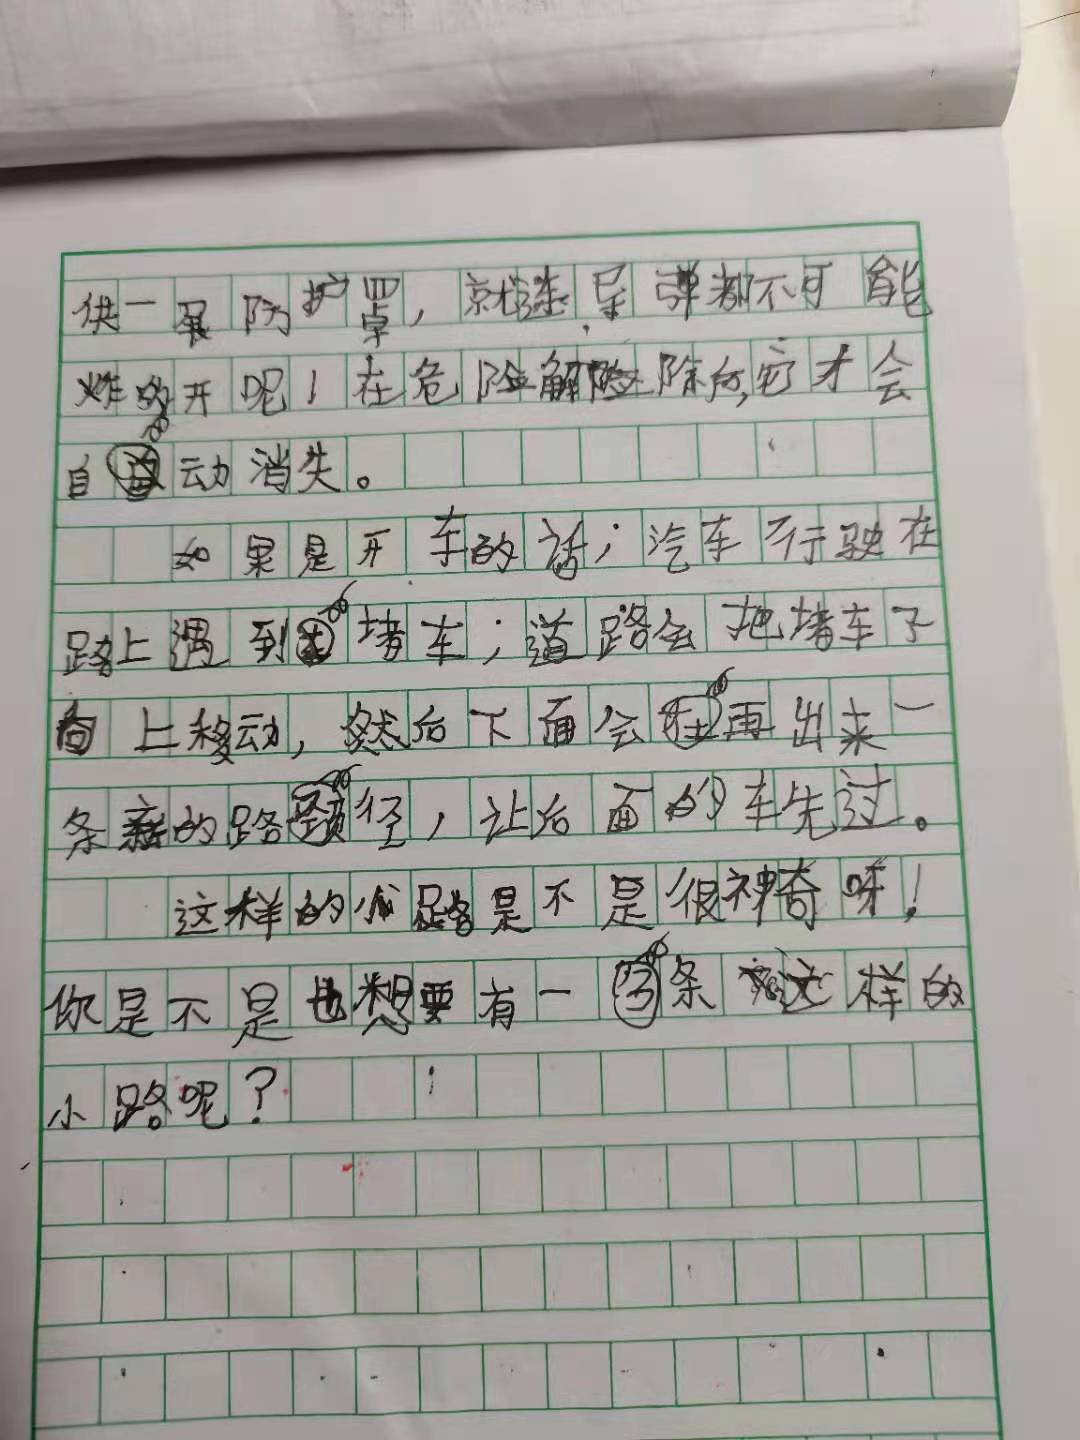 供一层防护罩，就连导弹都不可能
炸的开呢！在危险解险除后,它才会
自动消失。
如果是开车的话；汽车行驶在
路上遇到堵车；道路会把堵车子
向上移动，然后下面会再出来一
条新的路径，让后面的车先过。
这样的小路是不是很神奇呀！
你是不是也想要有一条这样的
小路呢？